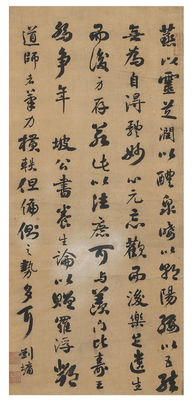 蒸以靈芝潤以醴泉晞以朝陽綏以五絃
無為自得體妙心玄忘歡而後樂足遺生
而後身存若此以往庶可與羨門比壽王
喬爭年 坡公書養生論以贈羅浮鄧
道師者筆力橫軼但偏側之勢多耳 劉墉